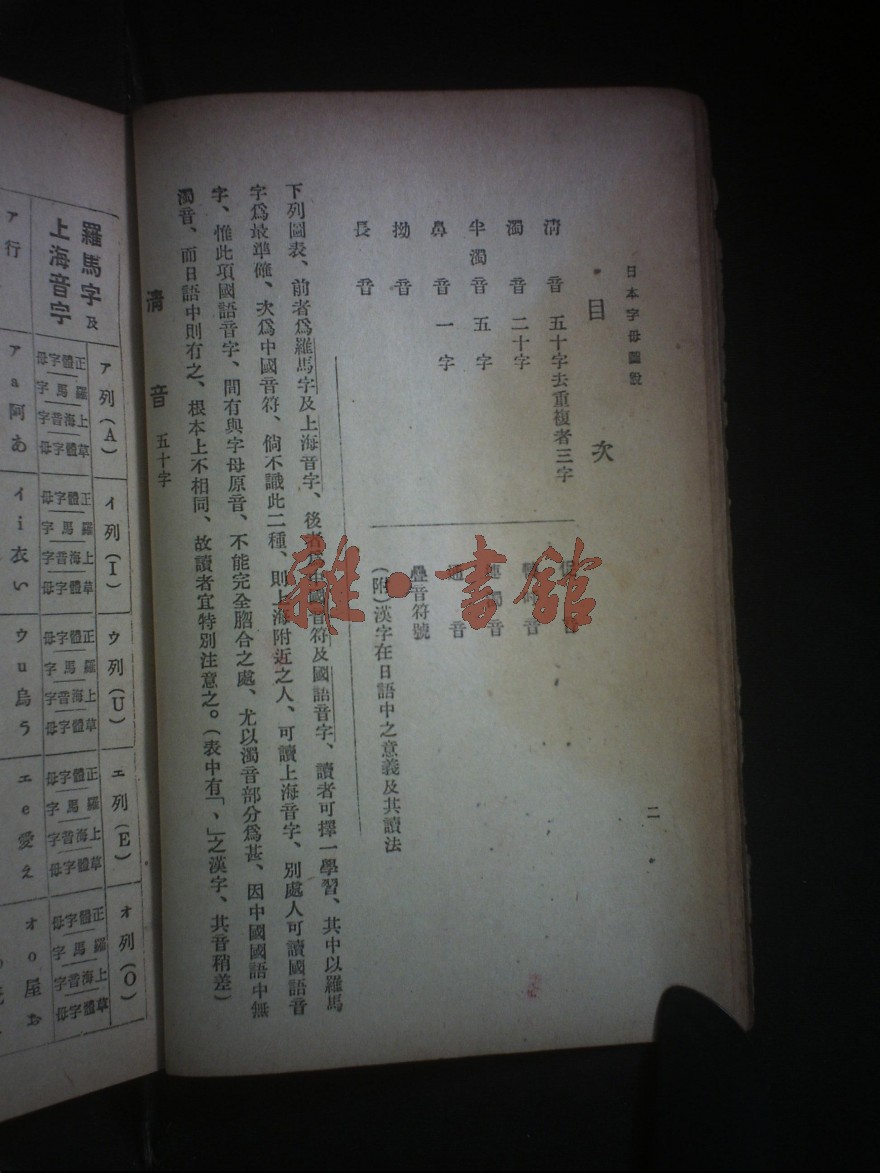 日本字母圖說
二
目次
清音 五十字去重複者三字
濁音 二十字
半濁音 五字
鼻音 一字
拗音
長音
音
音
連濁音
通音
疊音符號
(附)漢字在日語中之意義及其讀法
下列圖表、前者爲羅馬字及上海音字、後者爲中國音符及國語音字、讀者可擇一學習、其中以羅馬
字爲最準確、次爲中國音符、倘不識此二種、則上海附近之人、可讀上海音字、別處人可讀國語音
字、惟此項國語音字、間有與字母原音、不能完全脗合之處、尤以濁音部分爲甚、因中國國語中無
濁音、而日語中則有之、根本上不相同、故讀者宜特別注意之。(表中有「、」之漢字、其音稍差)
清音 五十字
羅馬字及上海音字
ア列(A)
イ列(I)
ウ列(U)
エ列(E)
オ列(O)
正體字母 羅馬字 上海音字 草體字母
正體字母 羅馬字 上海音字 草體字母
正體字母 羅馬字 上海音字 草體字母
正體字母 羅馬字 上海音字 草體字母
正體字母 羅馬字 上海音字 草體字母
ア行
ア a 阿 あ
イ i 衣 い
ウ u 烏 う
エ e 愛 え
オ o 屋 お
雜·書館